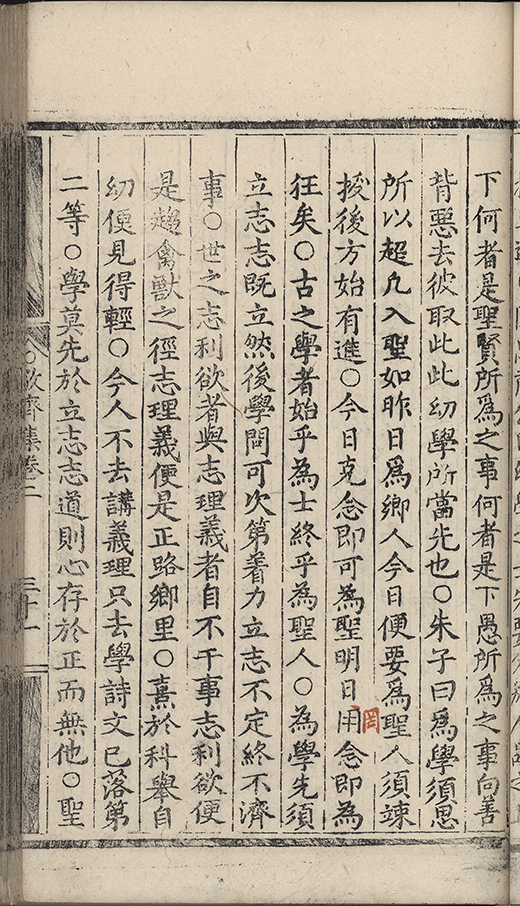 下何者是聖賢所爲之事何者是下愚所爲之事向善
背惡去彼取此此幼學所當先也○朱子曰爲學須思
所以超凡入聖如昨日爲鄉人今日便要爲聖人須竦
拔後方始有進○今日克念即可為聖明日罔念即為
狂矣○古之學者始乎為士終乎為聖人○為學先須
立志志既立然後學問可次第着力立志不定終不濟
事○世之志利欲者與志理義者自不干事志利欲便
是趨禽獸之徑志理義便是正路鄉里○熹於科舉自
幼便見得輕○今人不去講義理只去學詩文已落第
二等○學莫先於立志志道則心存於正而無他○聖
齊集卷二
三十一